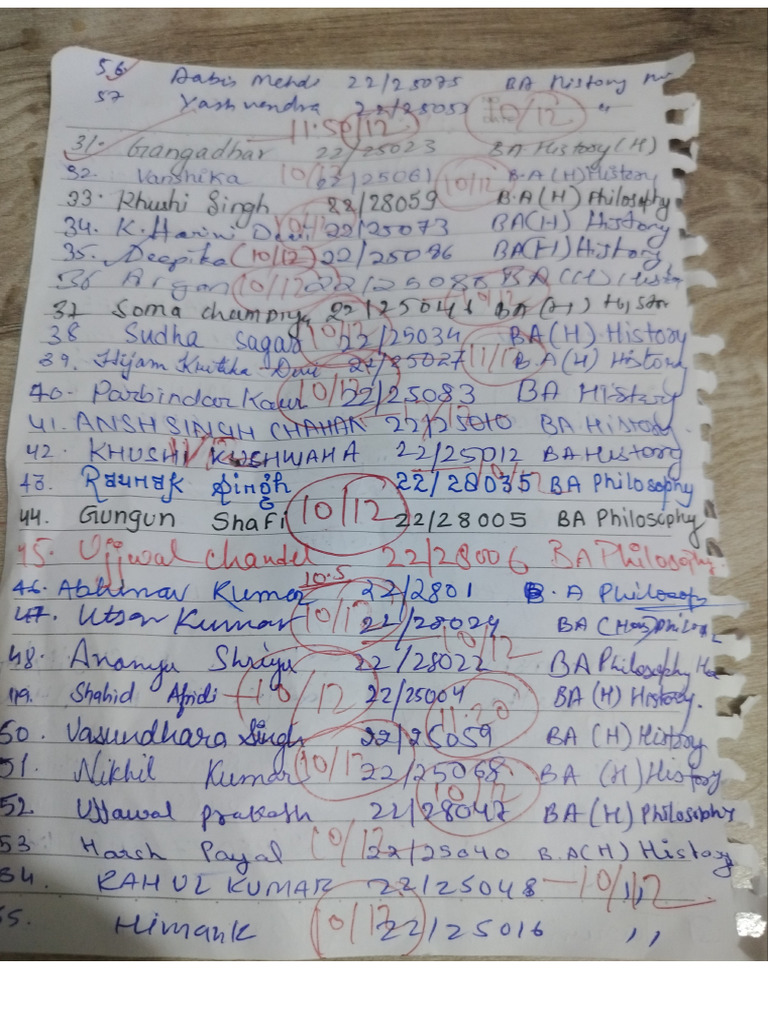 56. Aabis Mehdi 22/25075 BA History
57 Yashvendra 22/25057 10/12 "
11.50/12
31. Gangadhar 22/25023 BA History (H)
32. Vanshika 10/12 22/25061 10/12 B.A (H) History
33. Khushi Singh 22/28059 B.A (H) Philosophy
34. K. Harini Devi 22/25073 BA(H) History
35. Deepika (10/12) 22/25096 BA(H) History
36 10/12 BA (H)
37 Soma 10/12 BA (H)
38 Sudha sagar 10/12 22/25034 BA(H) History
39. Hijam Kritika Devi 22/25027 B.A (H) History
40. Parbindar Kaur 10/12 22/25083 BA History
41. ANSH SINGH CHAHAN 22/25010 BA History
42. KHUSHI KUSHWAHA 22/25012 BA History
43. Raunak Singh 22/28035 BA Philosophy
44. Gungun Shafi 10/12 22/28005 BA Philosophy
45. Ujjwal Chandel 22/28006 BA Philosophy.
10.5
46. Abhinav Kumar 22/2801 B. A
47. Utsav Kumar 10/12 22/28024 BA
10/12
48. Ananya 22/28022 BA Philosophy
49. Shahid Afridi 10/12 22/25004 BA (H) History.
11.20
50. Vasundhara Singh 22/25059 BA (H) History
51. Nikhil Kumar 10/12 22/25068 BA (H) History
10/12
52 Ujjawal prakash 22/28047 BA (H) Philosophy
53 Harsh Payal 10/12 22/25040 B.A(H) History
54. RAHUL KUMAR 22/25048 — 10/12 ,,
55. Himank 10/12 22/25016 ,,